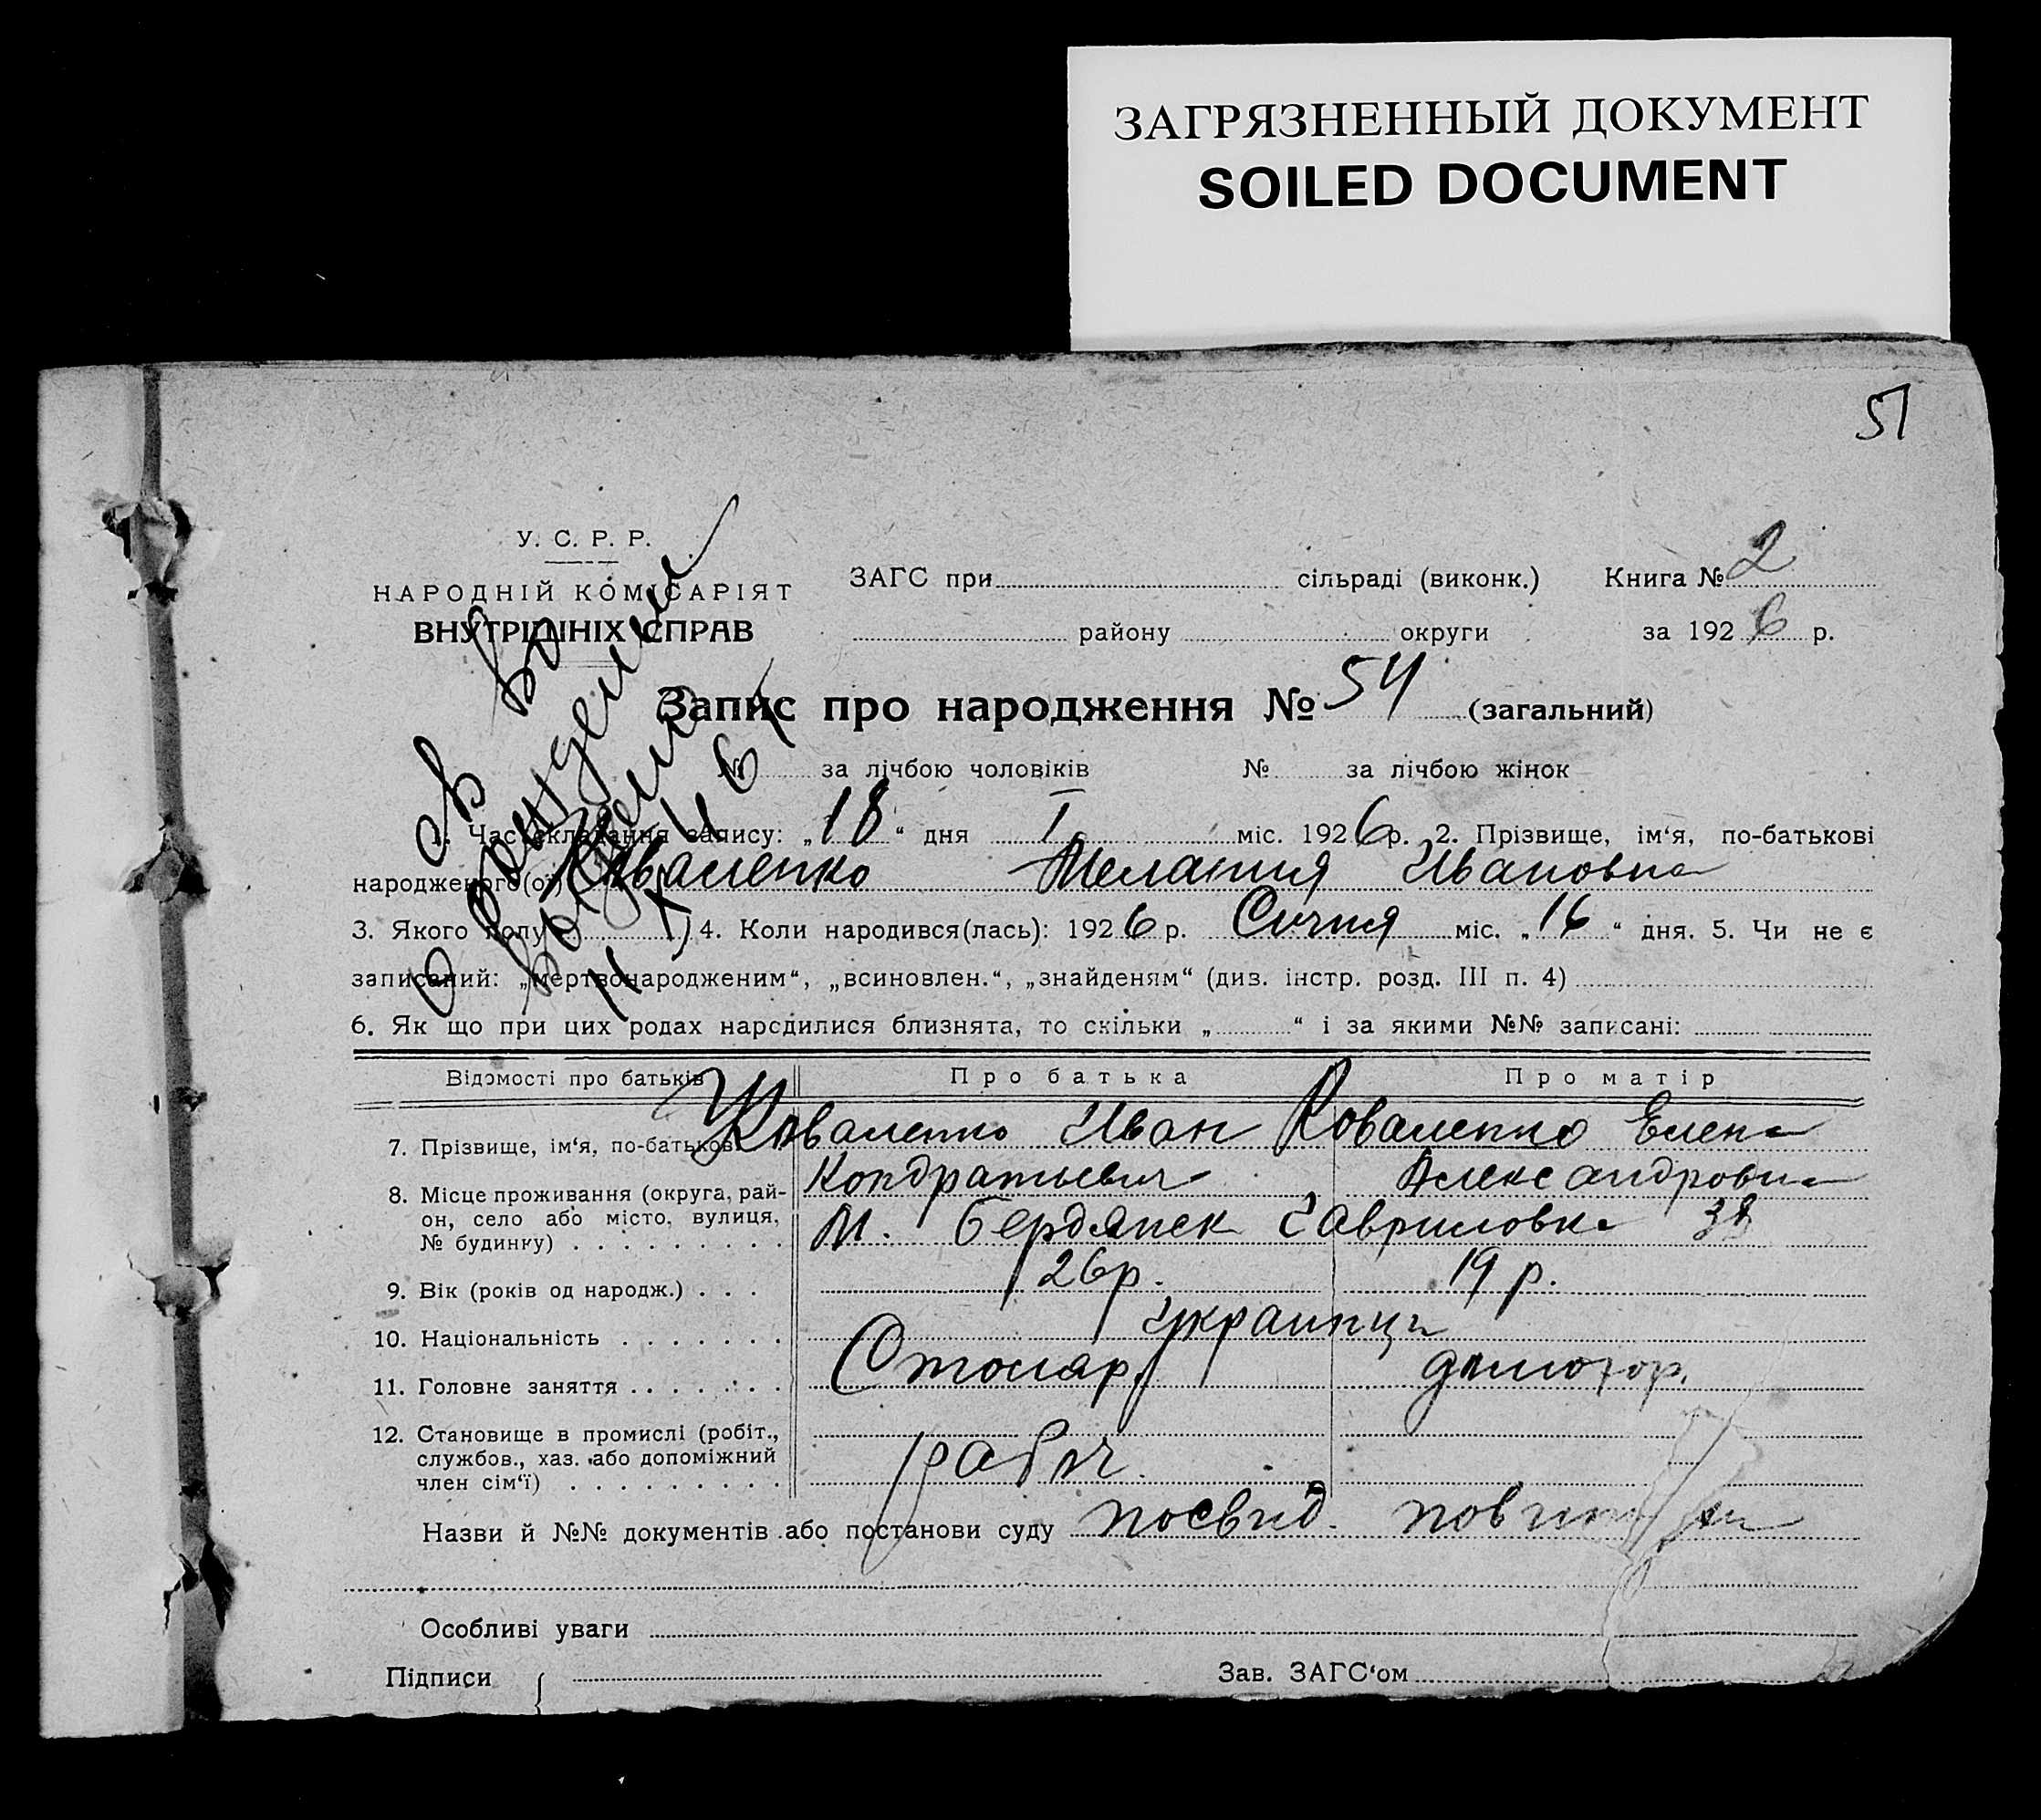 ЗАГРЯЗНЕННЫЙ ДОКУМЕНТ
SOILED DOCUMENT
51
У. С. Р. Р.
НАРОДНІЙ КОМІСАРІЯТ
ВНУТРІШНІХ СПРАВ
ЗАГС при сільраді (виконк.) Книга № 2
району округи за 1926 р.
Запис про народження № 54 (загальний)
№ за лічбою чоловіків № за лічбою жінок
1. Час складання запису: „18“ дня I міс. 1926 р. 2. Прізвище, ім‘я, по-батькові
народженого(ої) Коваленко Мелания Ивановна
3. Якого полу 4. Коли народився(лась): 1926 р. Січня міс. „16“ дня. 5. Чи не є
записаний: „мертвонародженим“, „всиновлен.“, „знайденям“ (диз. інстр. розд. III п. 4)
6. Як що при цих родах народилися близнята, то скільки „ “ і за якими №№ записані:
Відомості про батьків Про батька Про матір
7. Прізвище, ім‘я, по-батькові Коваленко Иван Коваленко Елена
Кондратьевич Александровна
8. Місце проживання (округа, рай-
он, село або місто, вулиця,
№ будинку) м. Бердянск Гавриловка 38
9. Вік (років од народж.) 26 р. 19 р.
10. Національність украинци
11. Головне заняття Столяр домогор.
12. Становище в промислі (робіт.,
службов., хаз. або допоміжний
член сім‘ї) рабоч.
Назви й №№ документів або постанови суду посвид.
Особливі уваги
Підписи { Зав. ЗАГС‘ом